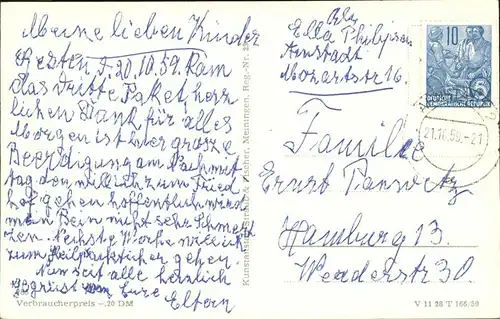 Meine lieben Kinder
Gestern d. 20.10.59. kam
das dritte Paket, herz
lichen Dank für alles
Morgen ist hier grosse
Beerdigung am Nachmit
tag don will ich zum Fried
hof gehen hoffentlich wird
mein Bein nicht sehr Schmert
zen. Nechste Woche will ich
zum Heilpraktiker gehen.
Nun seit alle herzlich
gegrüst von Eure Eltern
Verbraucherpreis –,20 DM
Kunstanstalt Straub & Fischer, Meiningen, Reg.-Nr.
Abs
Ella Philipsen
Arnstadt
Mozartstr 16.
10
DEUTSCHE
DEMOKRATISCHE REPUBLIK
5
21.10.59.-21
Familie
Ernst
Hamburg 13.
30
V 11 28 T 166/59